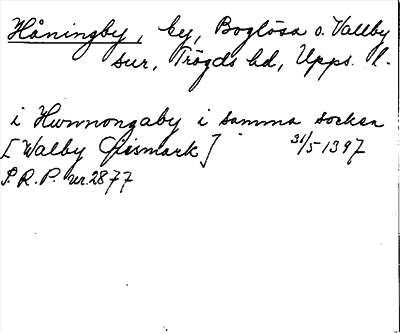 Håningby, by, Boglösa o. Vallby
snr, Trögds hd, Upps. l.
i Hwnnongaby i samma socken
[Walby Gismark] 31/5 1397
S.R.P. nr. 2877